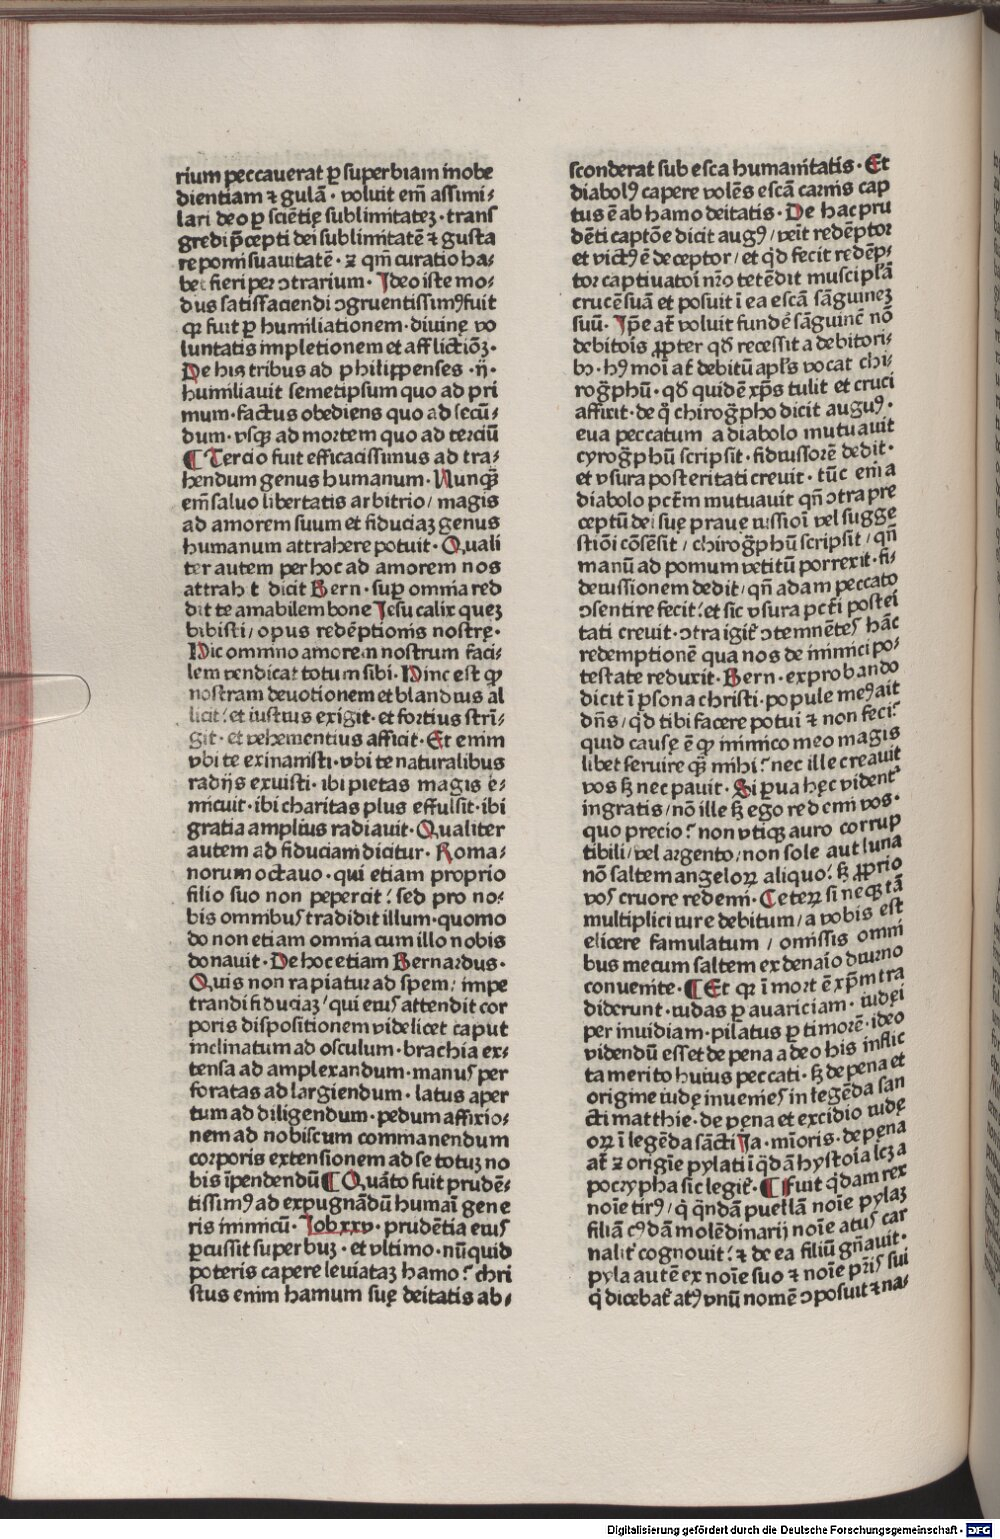 rium peccauerat ꝑ superbiam inobe
dientiam ⁊ gulã · voluit em̃ assimi⸗
lari deo ꝑ sciẽtię sublimitateꝫ · trans
gredi p̃cepti dei sublimitatẽ ⁊ gusta
re pomi suauitatẽ · ⁊ qm̃ curatio ha⸗
bet fieri per ↄtrarium · Ideo iste mo⸗
dus satisfaciendi ↄgruentissimꝰ fuit
qꝛ fuit ꝑ humiliationem · diuinę vo
luntatis impletionem et afflictiõꝫ ·
De his tribus ad philippenses · ij ·
humiliauit semetipsum quo ad pri
mum · factus obediens quo ad secũ⸗
dum · vsqꝫ ad mortem quo ad terciũ
¶ Tercio fuit efficacissimus ad tra⸗
hendum genus humanum · Nunqꝫ̃
em̃ saluo libertatis arbitrio / magis
ad amorem suum et fiduciaꝫ genus
humanum attrahere potuit · Quali
ter autem per hoc ad amorem nos
attrahit dicit Bern · suꝑ omnia red
dit te amabilem bone Iesu calix queꝫ
bibisti / opus redẽptionis nostrę ·
Hic omnino amorem nostrum faci⸗
lem vendicat totum sibi · Hinc est ꝙ
nostram deuotionem et blandius al
licit / et iustius exigit · et fortius strĩ⸗
git · et vehementius afficit · Et enim
vbi te exinanisti · vbi te naturalibus
radijs exuisti · ibi pietas magis e⸗
micuit · ibi charitas plus effulsit · ibi
gratia amplius radiauit · Qualiter
autem ad fiduciam dicitur · Roma⸗
norum octauo · qui etiam proprio
filio suo non pepercit / sed pro no⸗
bis omnibus tradidit illum · quomo
do non etiam omnia cum illo nobis
donauit · De hoc etiam Bernardus ·
Quis non rapiatur ad spem / impe
trandi fiduciaꝫ / qui eius attendit cor
poris dispositionem videlicet caput
inclinatum ad osculum · brachia ex⸗
tensa ad amplexandum · manus per
foratas ad largiendum · latus aper
tum ad diligendum · pedum affixio⸗
nem ad nobiscum commanendum
corporis extensionem ad se totuꝫ no
bis ĩpendendũ ¶ Quãto fuit prudẽ⸗
tissimꝰ ad expugnãdũ humaĩ gene
ris inimicũ · Iob xxv · prudẽtia eius
ꝑcussit superbuꝫ · et vltimo · nũquid
poteris capere leuiataꝫ hamo ? chri
stus enim hamum suę deitatis ab⸗
sconderat sub esca humanitatis · Et
diabolꝰ capere volẽs escã carnis cap
tus ẽ ab hamo deitatis · De hac pru
dẽti captõe dicit augꝰ / veĩt redẽptor
et victꝰ ẽ deceptor / et qd̃ fecit redẽp⸗
tor captiuatoĩ nr̃o tetẽdit muscipl̃ã
crucẽ suã et posuit ĩ ea escã sãguineꝫ
suũ · Ip̃e at̃ voluit fundẽ sãguinẽ nõ
debitoĩs ꝓpter qd̃ recessit a debitori⸗
bꝰ · hꝰmoĩ at̃ debitũ apl̃s vocat chi⸗
rog̃phũ · qd̃ quidẽ xp̃s tulit et cruci
affixit · de q̃ chirog̃pho dicit auguꝰ ·
eua peccatum a diabolo mutuauit
cyrog̃phũ scripsit · fidiussorẽ dedit ·
et vsura posteritati creuit · tũc em̃ a
diabolo pctm̃ mutuauit qñ ↄtra pre
ceptũ dei suę praue iussioĩ vel sugge
stiõi cõsẽsit / chirog̃phũ scripsit / qñ
manũ ad pomum vetitũ porrexit · fi⸗
deiussionem dedit / qñ adam peccato
ↄsentire fecit / et sic vsura pcti̇̃ postei
tati creuit · ↄtra igit̃ ↄtemnẽtes hãc
redemptionẽ qua nos de inimici po⸗
testate reduxit · Bern · exprobando
dicit ĩ ꝑsona christi · popule meꝰ ait
dñs / qd̃ tibi facere potui ⁊ non feci ?
quid causę ẽ ꝙ inimico meo magis
libet seruire qꝫ̃ mihi ? nec ille creauit
vos sꝫ nec pauit · Si ꝑua hęc vident̃
ingratis / nõ ille sꝫ ego redemi vos ·
quo precio ? non vtiqꝫ auro corrup
tibili / vel argento / non sole aut luna
nõ saltem angeloꝝ aliquo / sꝫ ꝓprio
vos cruore redemi · Ceteꝝ si neqꝫ tã
multiplici iure debitum / a vobis est
elicere famulatum / omissis omni
bus mecum saltem ex denaĩo diurno
conuenite · ¶ Et qꝛ ĩ mortẽ xp̃m tra
diderunt · iudas ꝑ auariciam · iudęi
per inuidiam · pilatus ꝑ timorẽ · ideo
videndũ esset de pena a deo his inflic
ta merito huius peccati · sꝫ de pena et
origine iudę inuenies in legẽda san
cti matthie · de pęna et excidio iudę
oꝝ ĩ legẽda sãcti Ja · mĩoris · de pęna
at̃ ⁊ origĩe pylati ĩ qd̃ã hystoĩa lcꝫ a
pocrypha sic legit̃ · ¶ Fuit qd̃am rex
noĩe tirꝰ / q̃ qñdã puellã noĩe pylaꝫ
filiã cꝰdam molẽdinarij noĩe atus car
nalit̃ cognouit / ⁊ de ea filiũ gñauit ·
pyla autẽ ex noĩe suo ⁊ noĩe pr̃is sui
q̃ dicebat̃ atꝰ vnũ nomẽ ↄposuit ⁊ na⸗
Digitalisierung gefördert durch die Deutsche Forschungsgemeinschaft · DFG